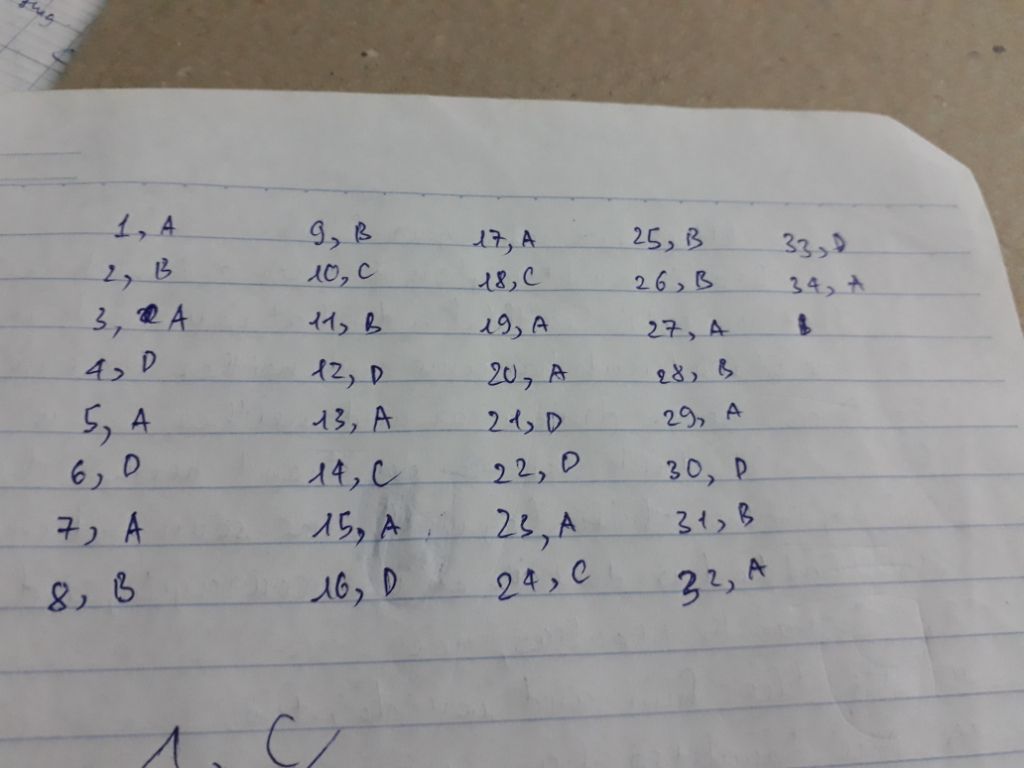 1, A
2, B
3, A
4, D
5, A
6, D
7, A
8, B
9, B
10, C
11, B
12, D
13, A
14, C
15, A
16, D
17, A
18, C
19, A
20, A
21, D
22, D
23, A
24, C
25, B
26, B
27, A
28, B
29, A
30, D
31, B
32, A
33, D
34, A
1, C